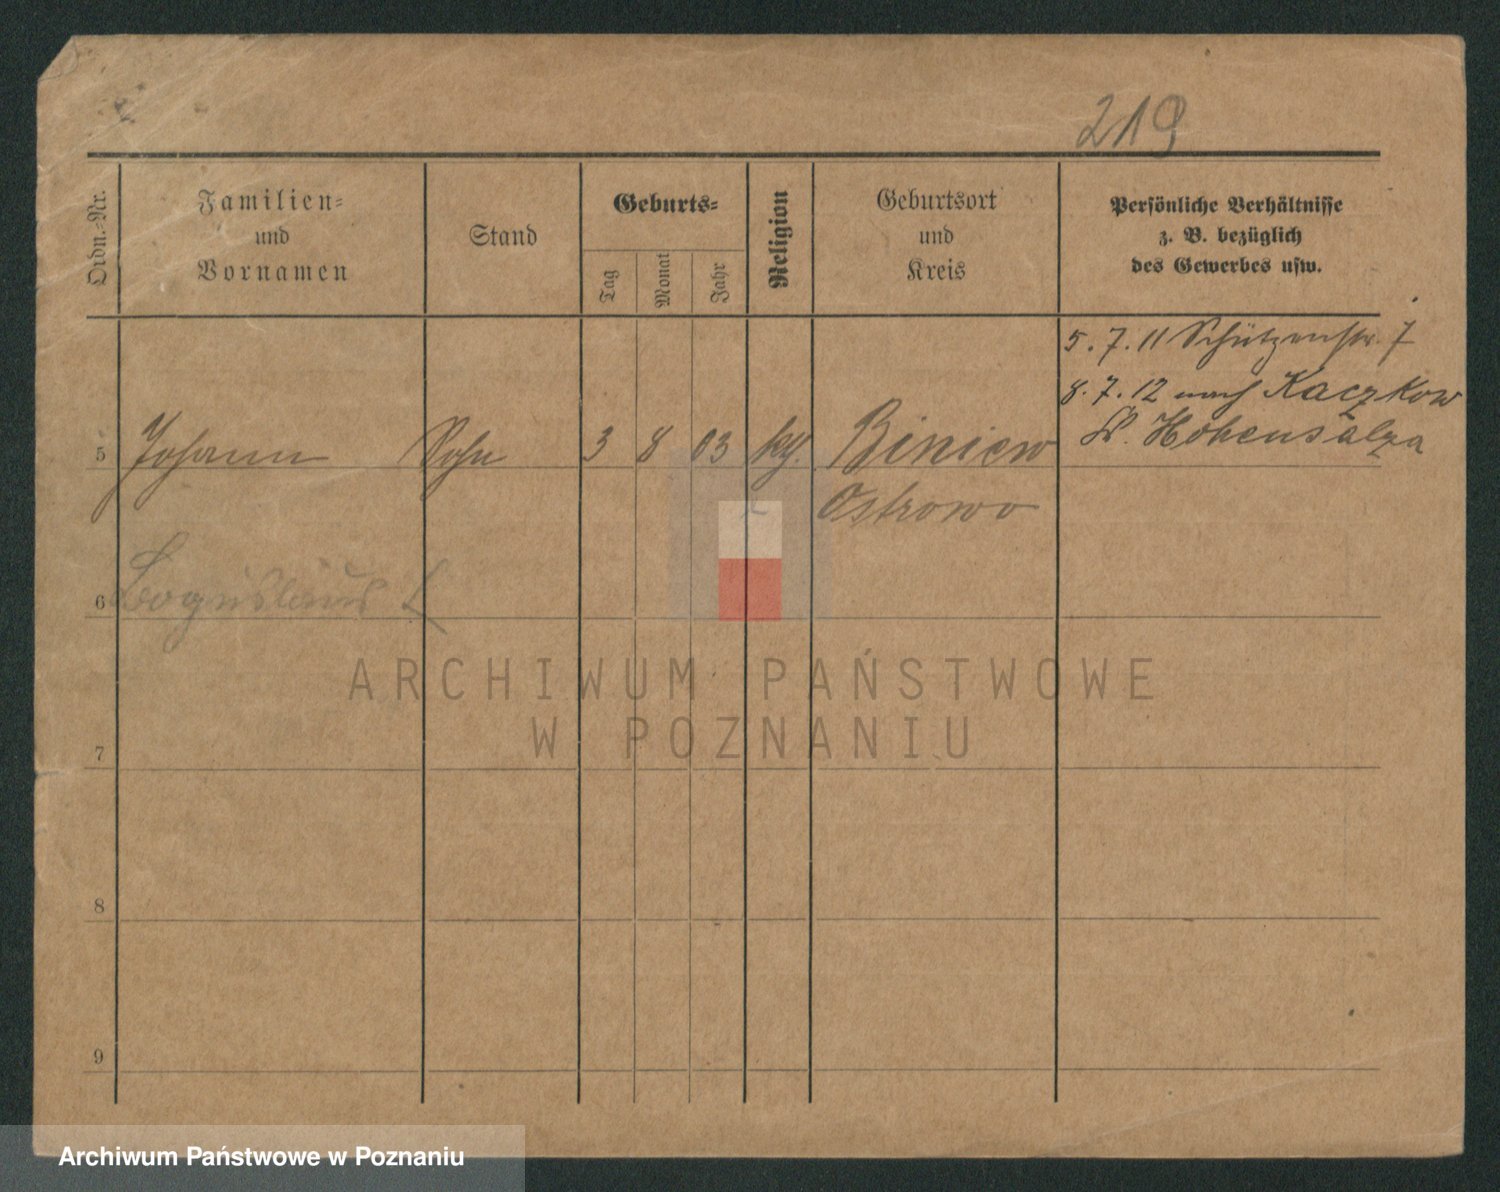 219
Ordn.-Nr.
Familien-
und
Vornamen
Stand
Geburts-
Tag
Monat
Jahr
Religion
Geburtsort
und
Kreis
Persönliche Verhältnisse
z. B. bezüglich
des Gewerbes usw.
5.7.11 Schützenstr. 7
8.7.12 nach Kaczkow
Kr. Hohensalza
5 Johann Sohn 3 8 03 Biniew
Ostrowo
6 Boguslaus
ARCHIWUM PAŃSTWOWE
W POZNANIU
7
8
9
Archiwum Państwowe w Poznaniu